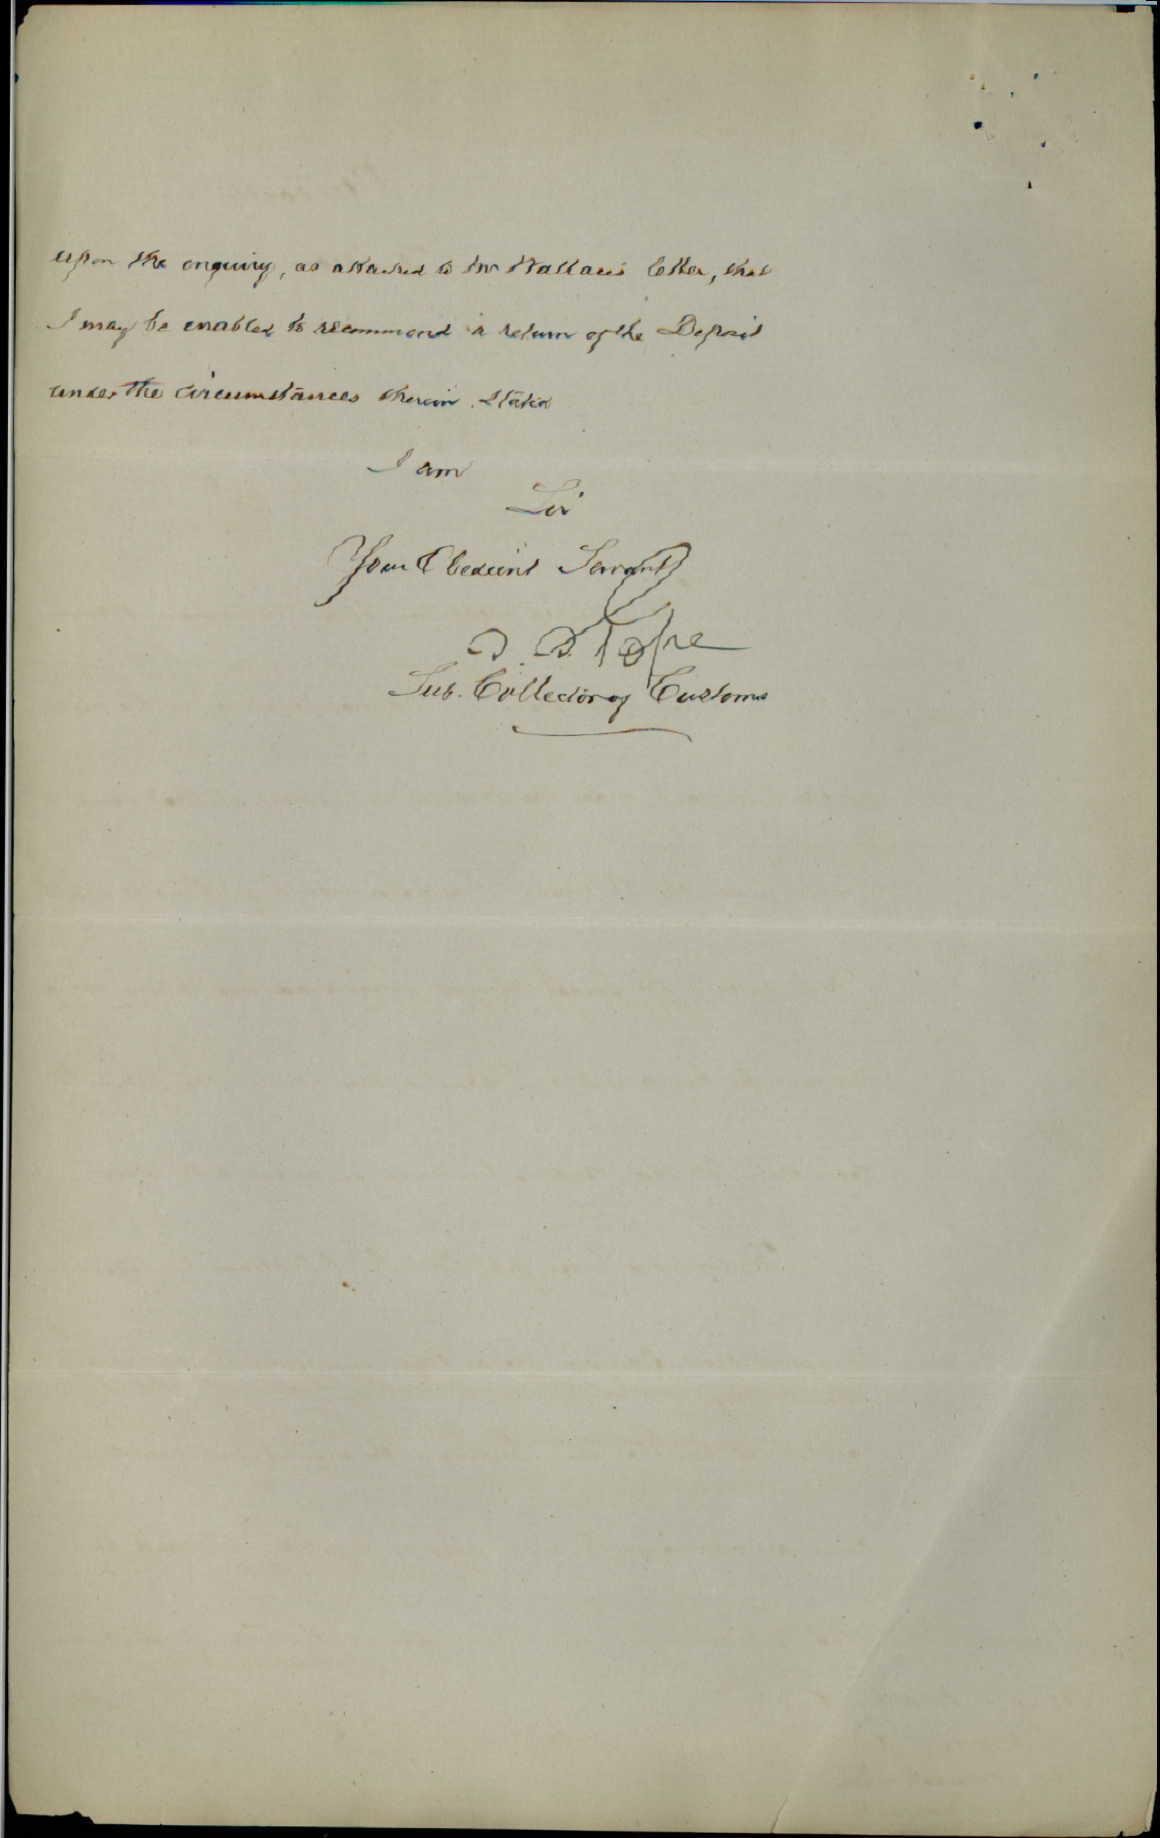 upon the enquiry, as attached to Mr Wallace's letter, that
I may be enabled to recommend a return of the Deposit
under the circumstances therein stated
I am
Sir
Your Obedient Servant
Sub. Collector of Customs